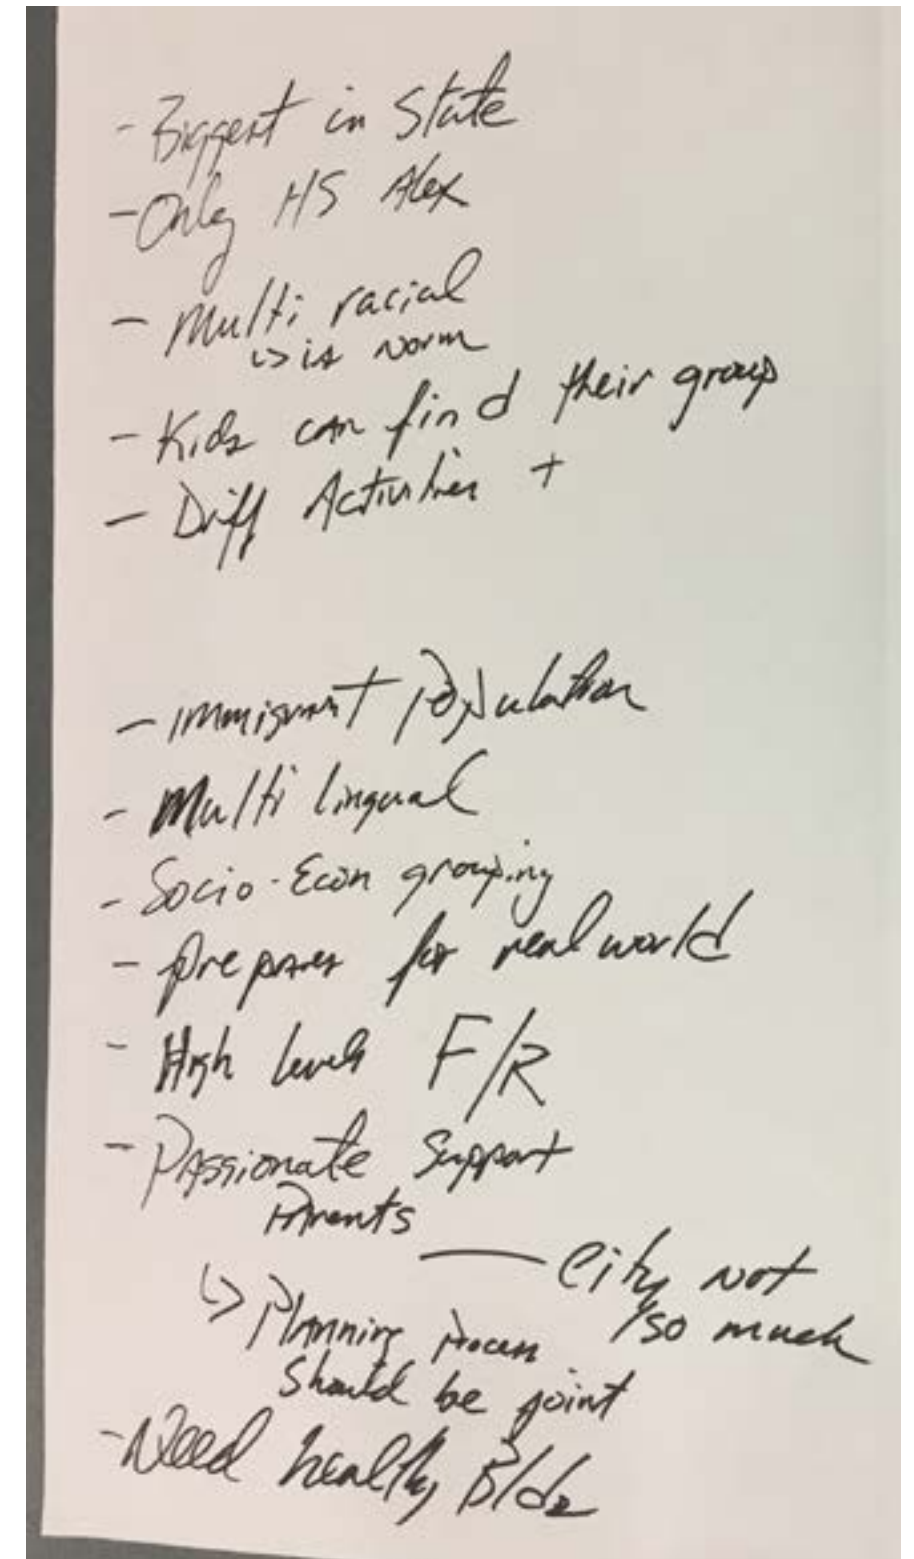 - Biggest in State
- Only HS Alex
- Multi racial
↳ is norm
- Kids can find their group
- Diff Activities +
- Immigrant Population
- Multi lingual
- Socio-Econ grouping
- prepares for real world
- High levels F/R
- Passionate Support
Parents
— City not
so much
↳ Planning process
should be joint
- Need healthy Bldz